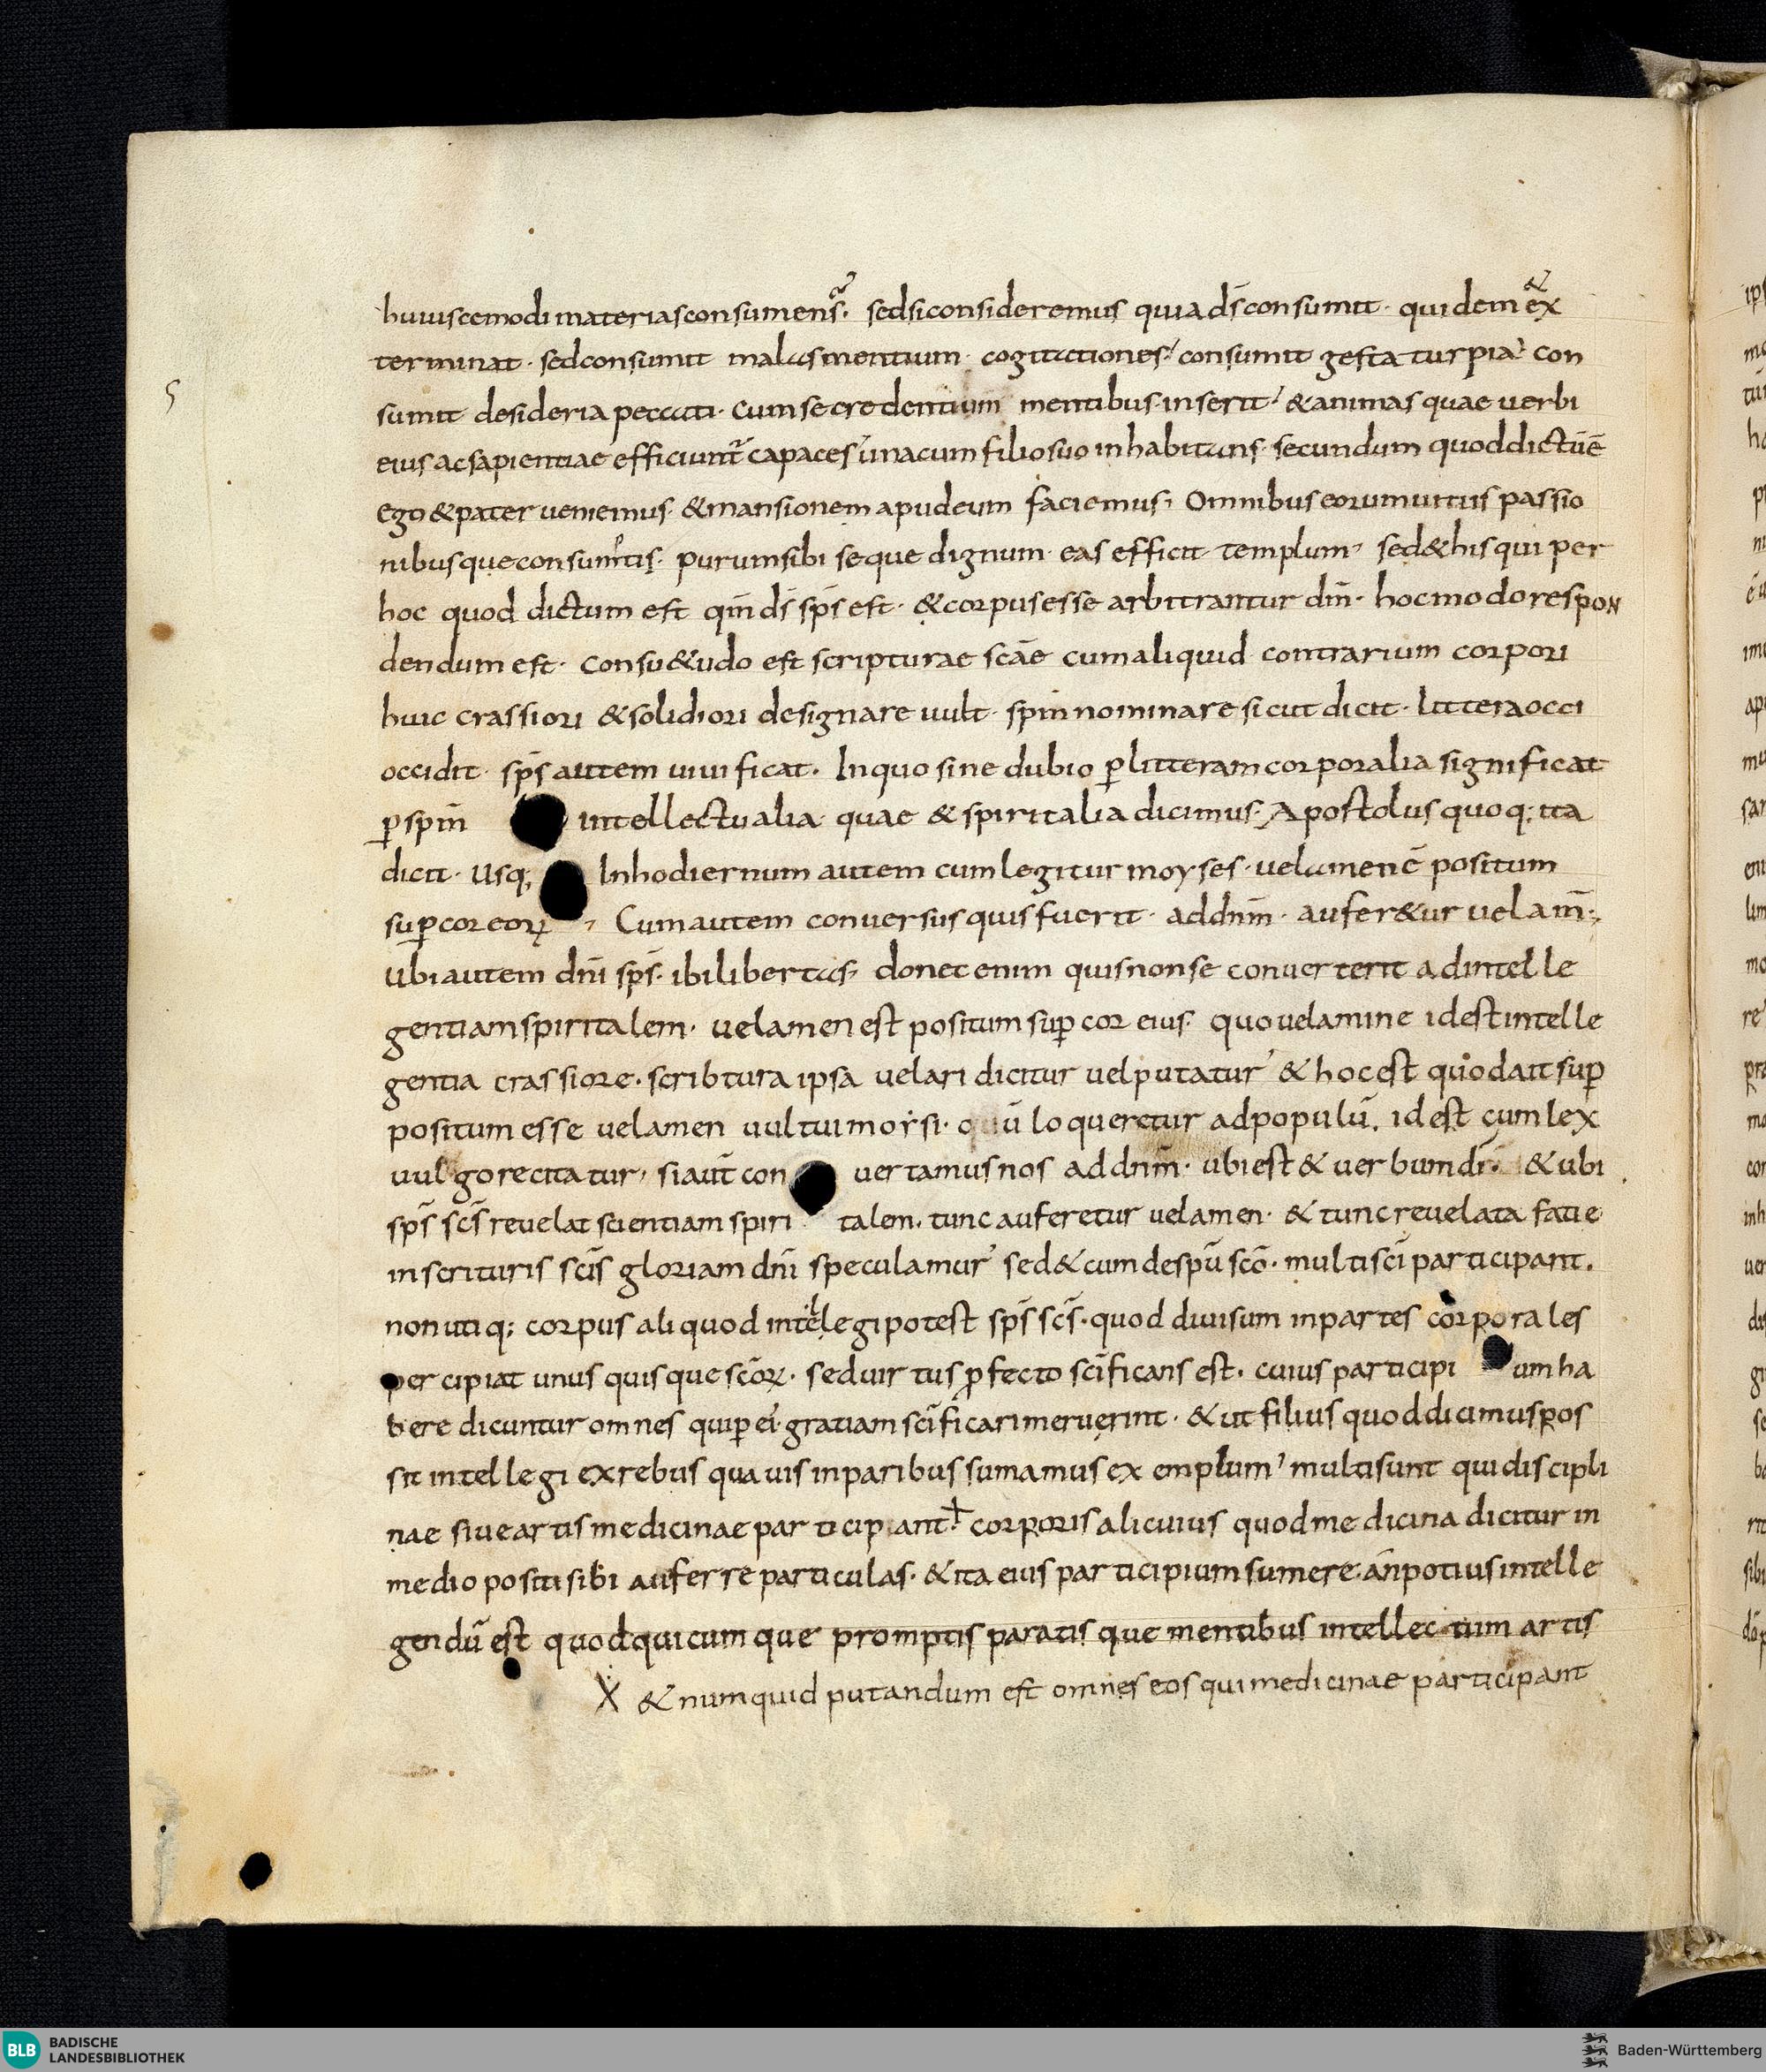 huiuscemodi materias consumens. sed si consideremus quia ds̄ consumit· quidem &ex
terminat· sed consumit malas mentium· cogitationes· consumit gesta turpia· con
5
sumit desideria peccati· cum se credentium mentibus inserit· & animas quae verbi
eius ac sapientiae efficiunt̄ capaces· una cum filio suo inhabitans· secundum quod dictū ē
ego & pater veniemus· & mansionem apud eum faciemus; Omnibus eorum vitiis passio
nibusque consumptis· purum sibi seque dignum eas efficit templum· sed & his qui per
hoc quod dictum est qm̄ ds̄ sps̄ est· & corpus esse arbitrantur dm̄· hoc modo respon
dendum est· Consu&udo est scripturae scāe cum aliquid contrarium corpori
huic crassiori & solidiori designare vult· spm̄ nominare sicut dicit· littera occi
occidit· sps̄ autem vivificat. In quo sine dubio ꝑ litteram corporalia significat
ꝑ spm̄ intellectualia quae & spiritalia dicimus· Apostolus quoq; ita
dicit· Usq; In hodiernum autem cum legitur moyses· velamen ē positum
suꝑ cor eoꝝ, Cum autem conversus quis fuerit· ad dnm̄· aufer&ur velam̄·;
Ubi autem dnī sps̄· ibi libertas· donec enim quis non se converterit ad intelle
gentiam spiritalem· velamen est positum suꝑ cor eius· quo velamine id est intelle
gentia crassiore· scribtura ipsa velari dicitur vel putatur & hoc est quod ait suꝑ
positum esse velamen vultui moysi· quū loqueretur ad populū. id est cum lex
vulgo recitatur, si aut̄ con vertamus nos ad dnm̄· ubi est & verbum dī· & ubi
sps̄ scs̄ revelat scientiam spiri talem. tunc auferetur velamen· & tunc revelata facie
in scrituris scīs gloriam dnī speculamur sed & cum de spū scō· multi scī participant.
non utiq; corpus aliquod intellegi potest sps̄ scs̄· quod divisum in partes corporales
percipiat unus quisque scōꝝ· sed virtus ꝓfecto scīficans est. cuius participi um ha
bere dicuntur omnes qui ꝑ ei· gratiam scīficari meruerint· & ut filius quod dicimus pos
sit intellegi ex rebus quavis inparibus sumamus exemplum, multi sunt qui discipli
nae sive artis medicinae participant· ⸸ corporis alicuius quod medicina dicitur in
medio positi sibi auferre particulas· & ita eius participium sumere· an potius intelle
gendū est quod quicumque promptis paratis que mentibus intellectum artis
X & numquid putandum est omnes eos qui medicinae participant
BLB BADISCHE LANDESBIBLIOTHEK
Baden-Württemberg